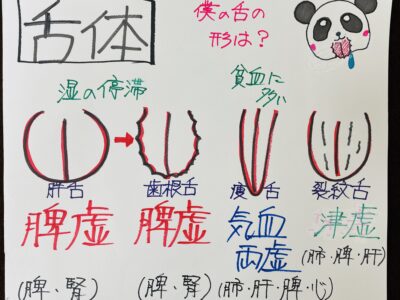 舌体
僕の舌の
形は？
湿の停滞
貧血に
多い
胖舌
歯根舌
痩舌
裂紋舌
脾虚
脾虚
気血
両虚
津虚
(肺・脾・肝)
(脾、腎)
(脾、腎)
(肺・肝・脾・心)